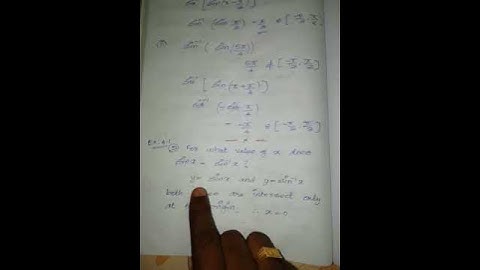 sin⁻¹ (sin π/4) = π/4 ∈ [-π/2, π/2]
sin⁻¹ (sin (5π/4))
5π/4 ∉ [-π/2, π/2]
sin⁻¹ [sin (π + π/4)]
sin⁻¹ (-sin π/4)
= -π/4 ∈ [-π/2, π/2]
Ex. 4.1 For what value of x does
sin x = sin⁻¹ x ?
y = sin x and y = sin⁻¹ x
both intersect only
at origin. ∴ x = 0